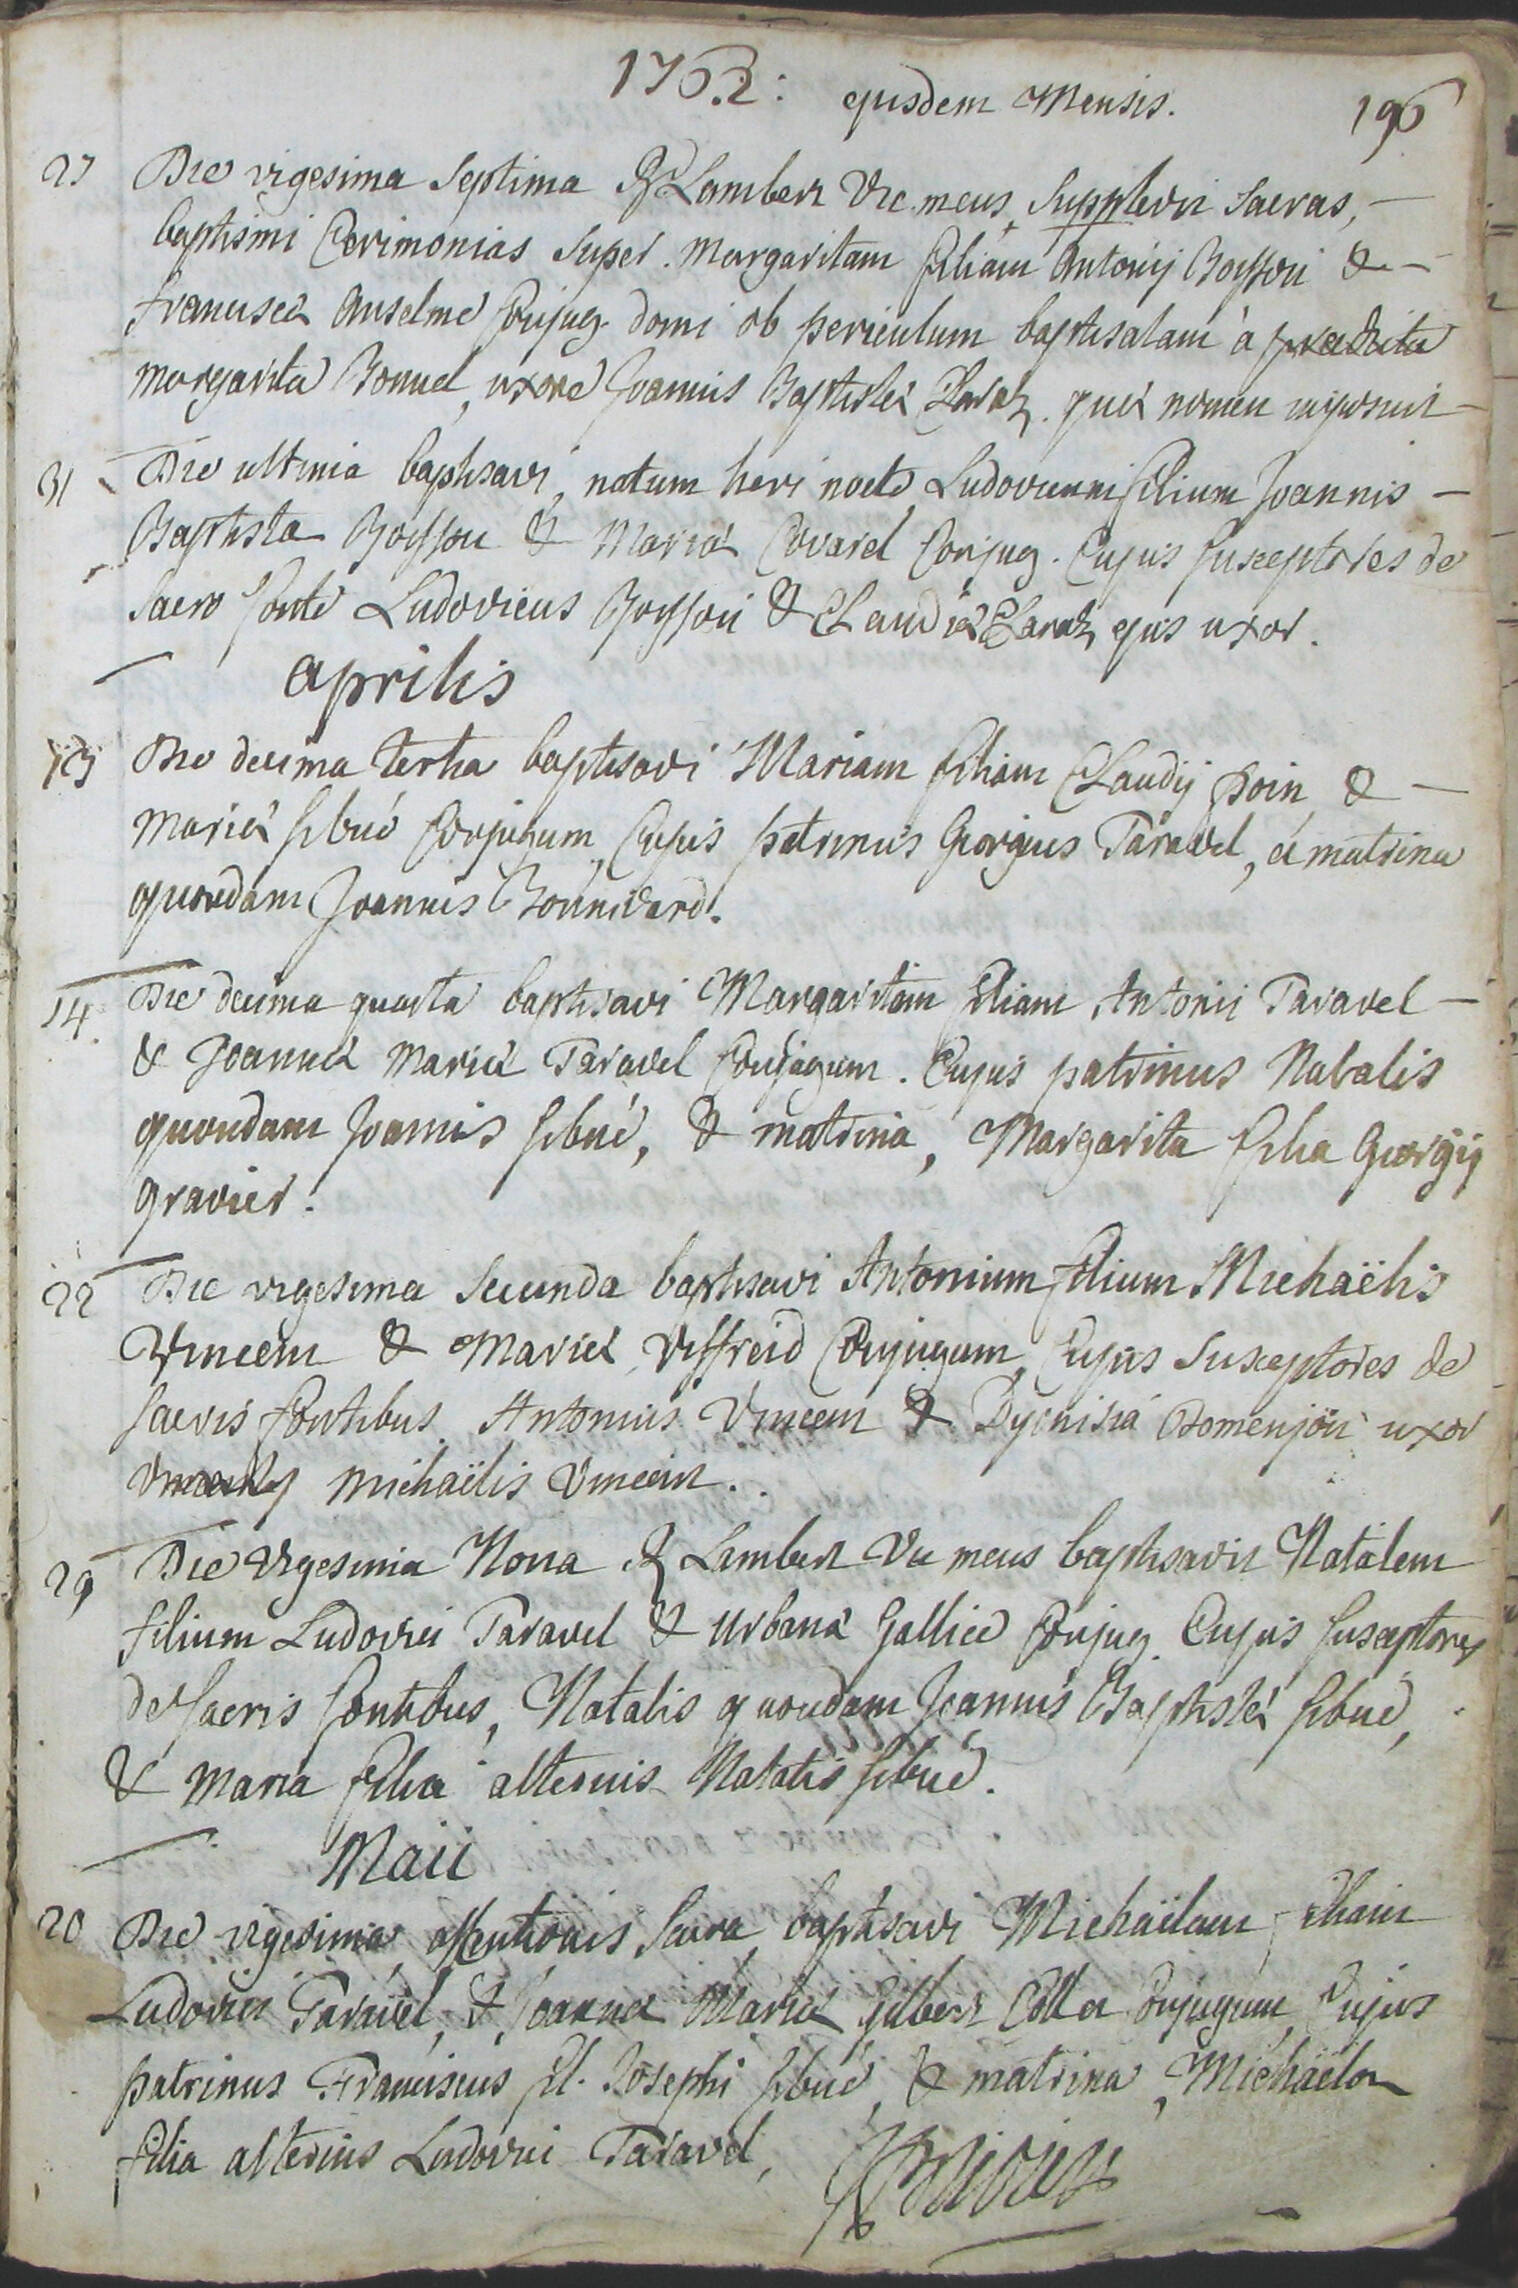 1762: ejusdem Mensis. 196
27 Die vigesima septima R Lambert Vic. meus, supplevit sacras,
baptismi Cerimonias super Margaritam filiam Antonij Boisson &
Francisca Anselme Conjug. domi ob periculum baptisatam à
Margarita Bonnel, uxore Joannis Baptistæ Claraz. quæ nomen imposuit
31 Die ultima baptisavi, natum heri nocte, Ludovicum filium Joannis
Baptista Boisson & Mariæ Covarel Conjug. Cujus susceptores de
sacro fonte Ludovicus Boisson & Claudia Claraz ejus uxor.
Aprilis
13 Die decima tertia baptisavi Mariam filiam Claudij Poin &
Mariæ sibué Conjugum, Cujus patrinus Georgius Taravel, & matrina
quondam Joannis Bonnivard.
14 Die decima quarta baptisavi Margaritam filiam Antonii Taravel
& Joannæ Mariæ Taravel Conjugum. Cujus patrinus Natalis
quondam Joannis sibué, & matrina, Margarita filia Georgij
Gravier.
22 Die vigesima secunda baptisavi Antonium filium Michaëlis
Vincent & Mariæ Viffreid Conjugum, Cujus susceptores de
sacris fontibus. Antonius Vincent & Dyonisia Domenjon uxor
Michaëlis Vincent.
29 Die vigesima Nona R Lambert Vic meus baptisavit Natalem
filium Ludovici Taravel & Urbanæ Gallice Conjug. Cujus susceptores
de sacris fontibus, Natalis quondam Joannis Baptistæ sibué,
& Maria filia alterius Natalis sibué.
Maii
20 Die vigesima, Ascentionis sacra baptisavi Michaëlam filiam
Ludovici Taravel, & Joannæ Mariæ Gilbert Collet Conjugum, Cujus
patrinus Franciscus fil. Josephi sibué, & matrina, Michaëla
filia alterius Ludovici Taravel,